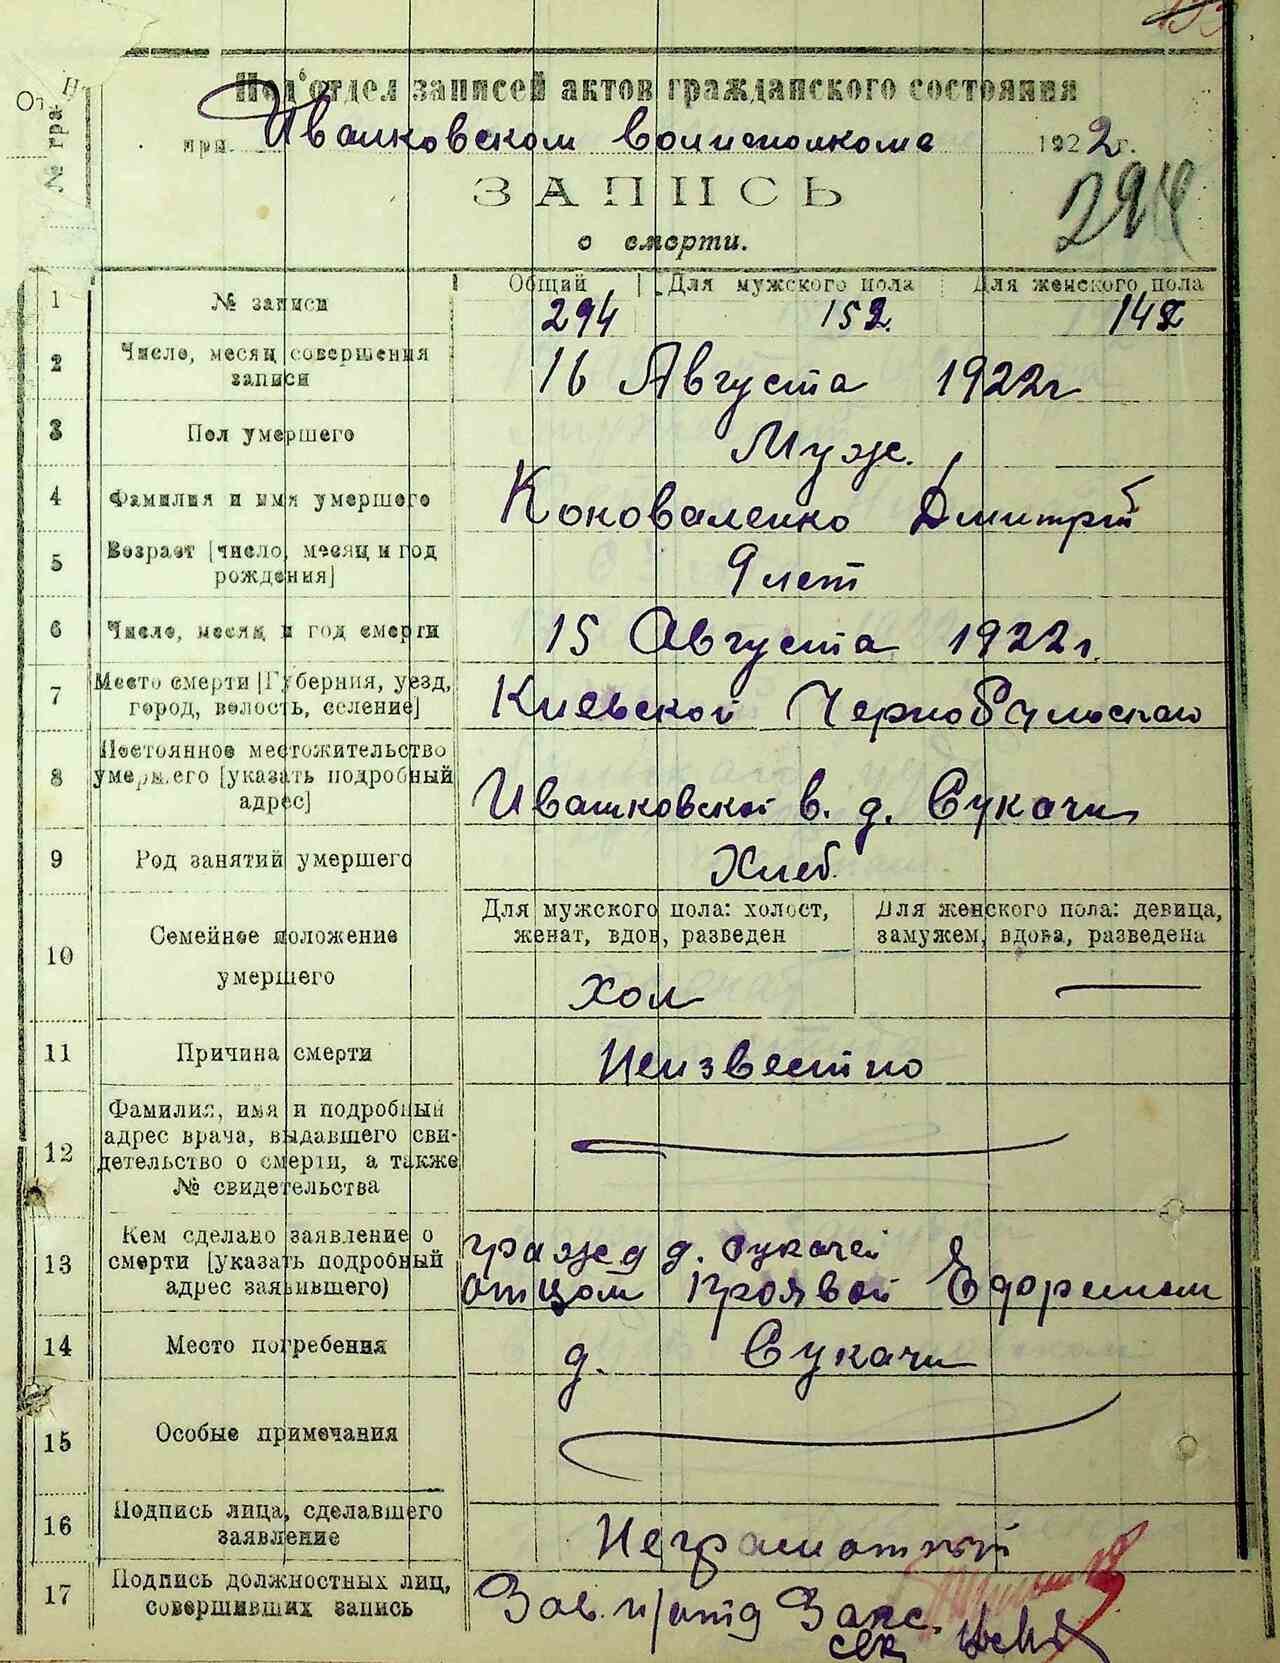 Под'отдел записей актов гражданского состояния
при Иванковском волисполкома 1922 г.
294
ЗАПИСЬ
о смерти.
1 № записи Общий Для мужского пола Для женского пола
294 152 142
2 Число, месяц совершения записи
16 Августа 1922 г
3 Пол умершего
Муж.
4 Фамилия и имя умершего
Коноваленко Дмитрій
5 Возраст [число, месяц и год
рождения]
9 лет
6 Число, месяц и год смерти
15 Августа 1922 г.
7 Место смерти [Губерния, уезд,
город, волость, селение]
Киевской
8 Постоянное местожительство
умершего [указать подробный
адрес]
Иванковской в. д. Сукачи
9 Род занятий умершего
Хлеб.
10 Семейное положение
умершего
Для мужского пола: холост,
женат, вдов, разведен
Для женского пола: девица,
замужем, вдова, разведена
Хол —
11 Причина смерти
Неизвестно
12 Фамилия, имя и подробный
адрес врача, выдавшего сви-
детельство о смерти, а также
№ свидетельства
13 Кем сделано заявление о
смерти [указать подробный
адрес заявившего)
гражд д. Сукачей
отцом
14 Место погребения
д. Сукачи
15 Особые примечания
16 Подпись лица, сделавшего
заявление
Неграмотный
17 Подпись должностных лиц,
совершивших запись
Зав. п/отд Загс.
сек